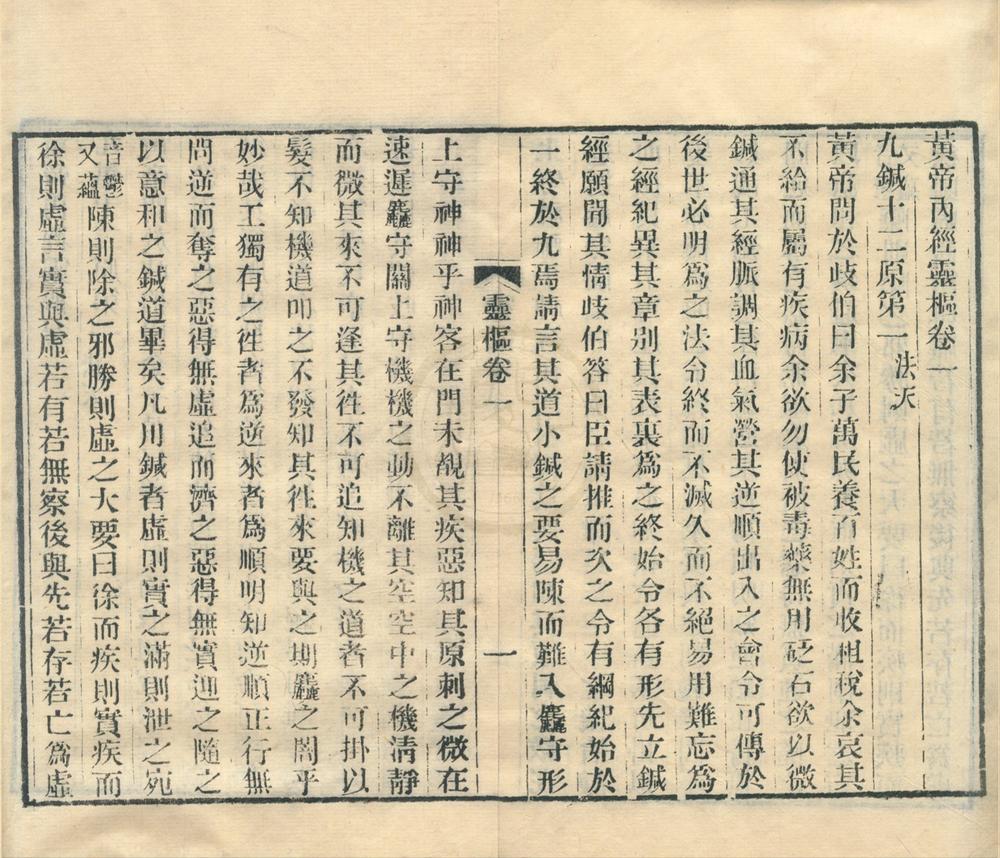 黃帝內經靈樞卷一
九鍼十二原第一 法天
黃帝問於歧伯曰余子萬民養百姓而收租稅余哀其
不給而屬有疾病余欲勿使被毒藥無用砭石欲以微
鍼通其經脈調其血氣營其逆順出入之會令可傳於
後世必明爲之法令終而不滅久而不絕易用難忘爲
之經紀異其章別其表裏爲之終始令各有形先立鍼
經願聞其情歧伯答曰臣請推而次之令有綱紀始於
一終於九焉請言其道小鍼之要易陳而難入麤守形
靈樞卷一 一
上守神神乎神客在門未覩其疾惡知其原刺之微在
速遲麤守關上守機機之動不離其空空中之機清靜
而微其來不可逢其徃不可追知機之道者不可掛以
髮不知機道叩之不發知其徃來要與之期麤之闇乎
妙哉工獨有之徃者爲逆來者爲順明知逆順正行無
問逆而奪之惡得無虛追而濟之惡得無實迎之隨之
以意和之鍼道畢矣凡用鍼者虛則實之滿則泄之宛
音鬱又蘊陳則除之邪勝則虛之大要曰徐而疾則實疾而
徐則虛言實與虛若有若無察後與先若存若亡爲虛